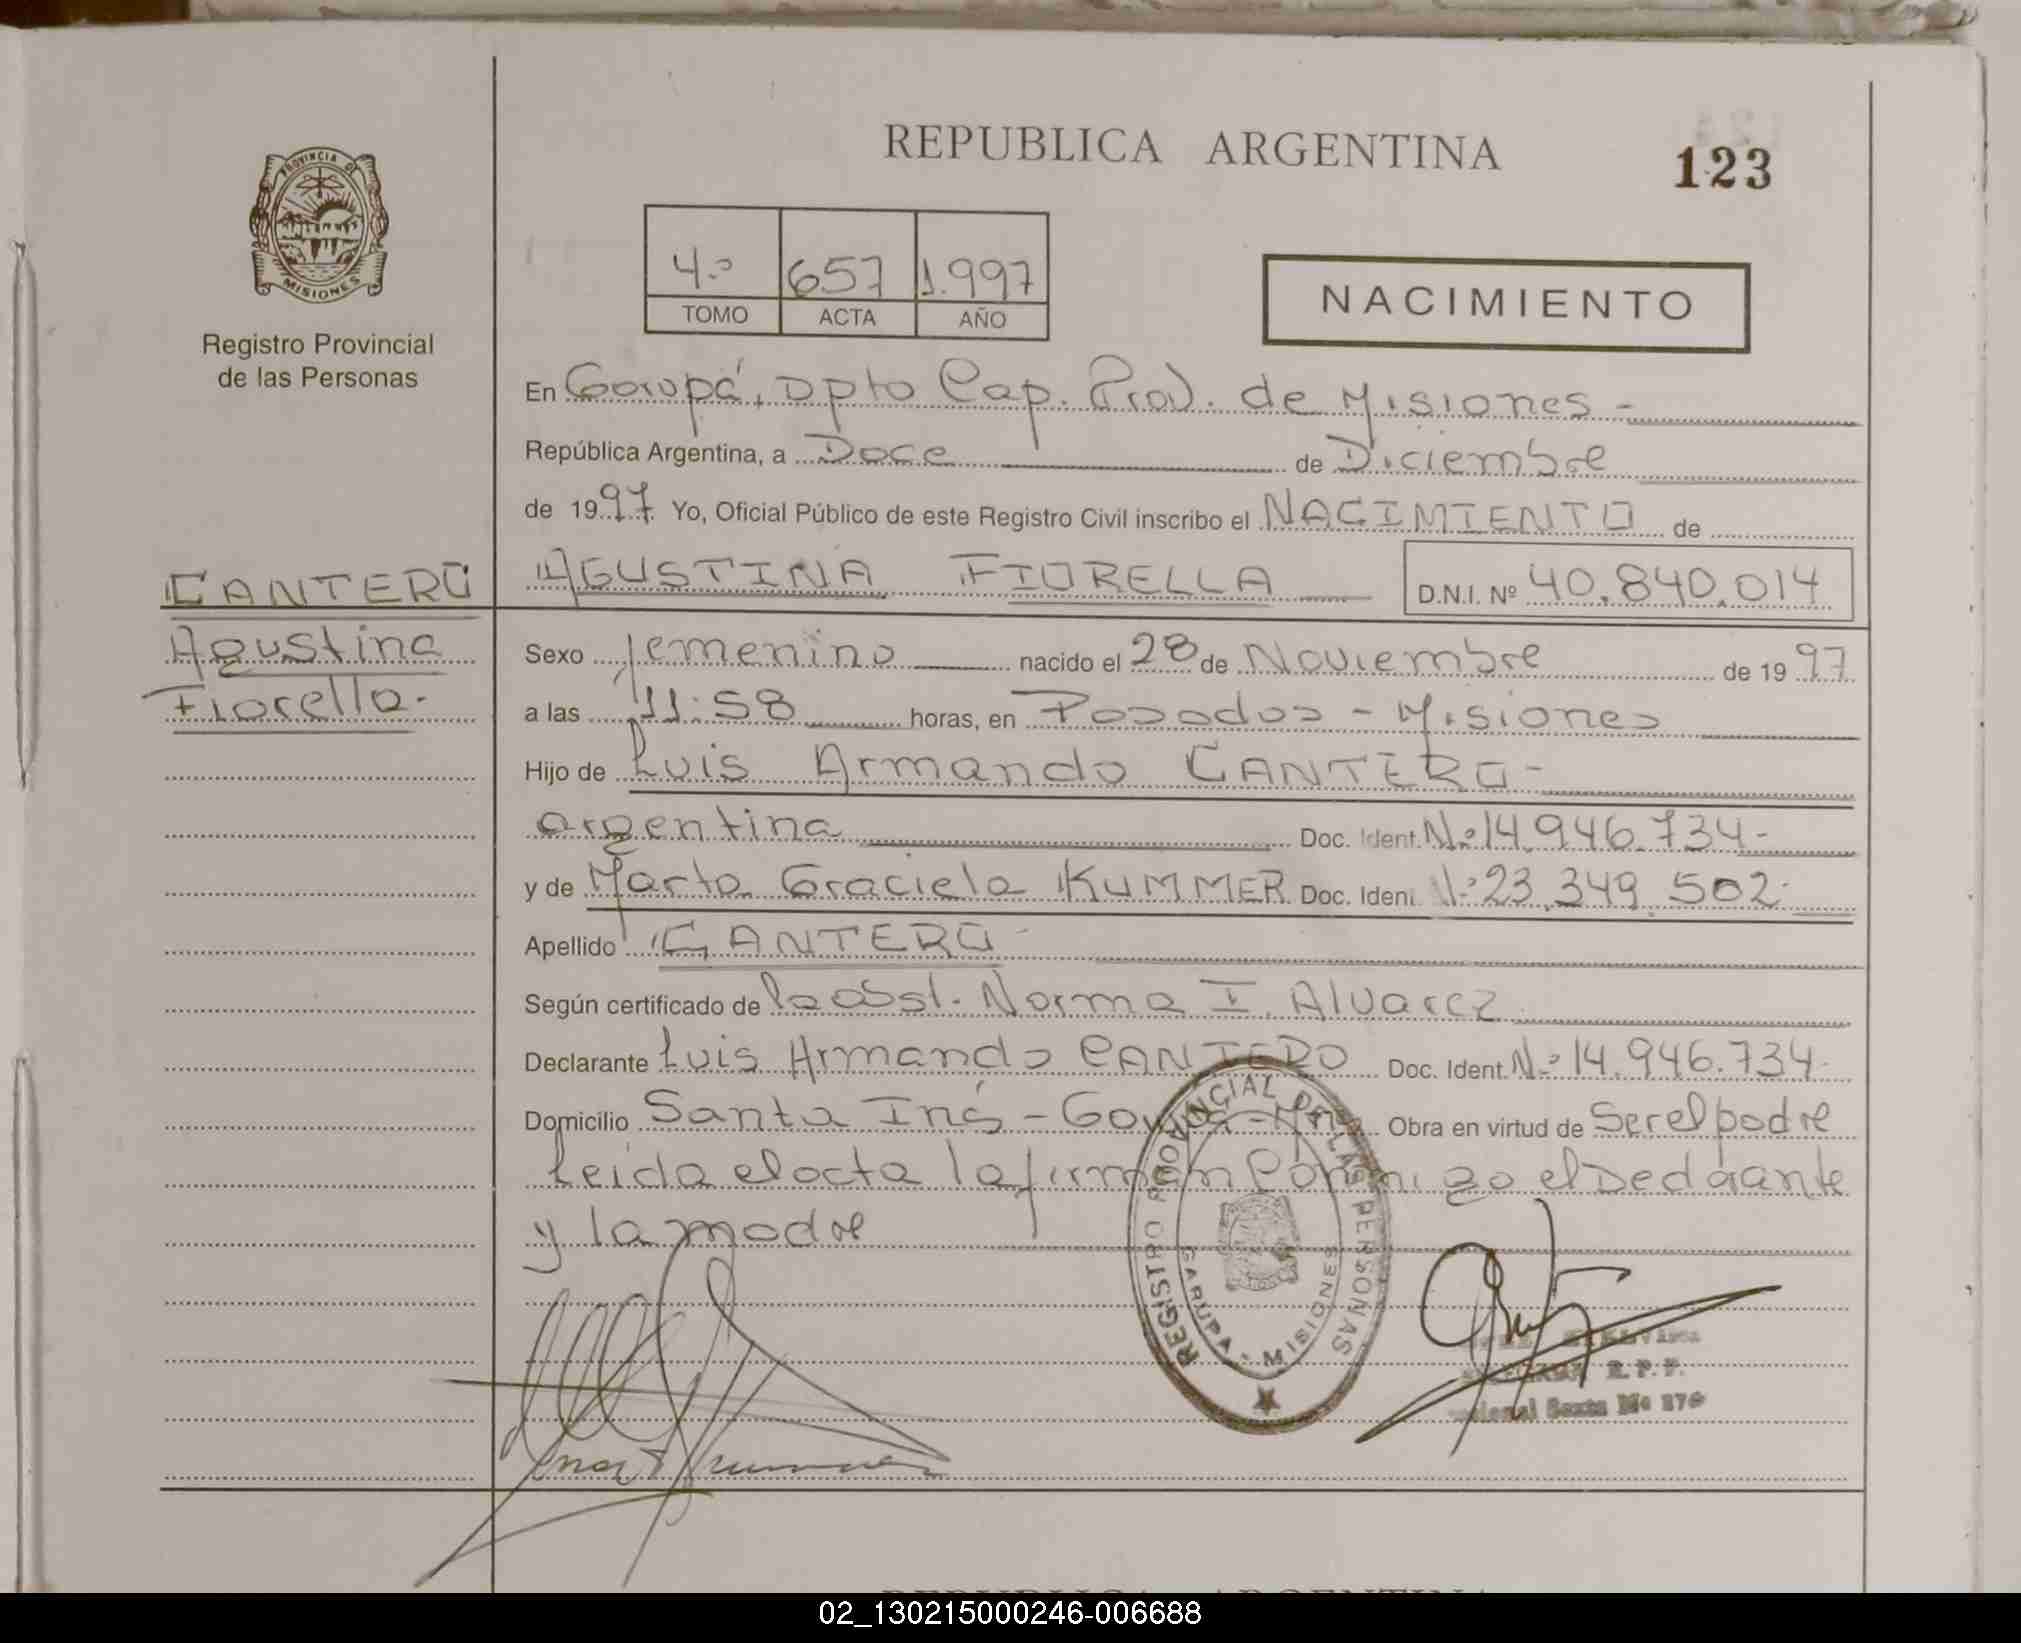 REPUBLICA ARGENTINA
123
PROVINCIA DE
MISIONES
Registro Provincial
de las Personas
4.º 657 1.997
TOMO ACTA AÑO
NACIMIENTO
En Garupá, Dpto Cap. Prov. de Misiones -
República Argentina, a Doce de Diciembre
de 1997 Yo, Oficial Público de este Registro Civil inscribo el NACIMIENTO de
AGUSTINA FIORELLA D.N.I. Nº 40.840.014
CANTERO
Agustina
Fiorella.
Sexo femenino nacido el 28 de Noviembre de 1997
a las 11:58 horas, en Posadas - Misiones
Hijo de Luis Armando CANTERO -
argentina Doc. Ident. Nº 14.946.734 -
y de Marta Graciela KUMMER Doc. Ident. Nº 23.349.502 -
Apellido CANTERO -
Según certificado de la obst. Norma I. Alvarez
Declarante Luis Armando CANTERO Doc. Ident. Nº 14.946.734 -
Domicilio Santa Inés - Garupá - Mnes Obra en virtud de Ser el padre
Leida el acta la firman conmigo el Declarante
y la madre
REGISTRO PROVINCIAL DE LAS PERSONAS
GARUPA - MISIONES
R. P. P.
02_130215000246-006688